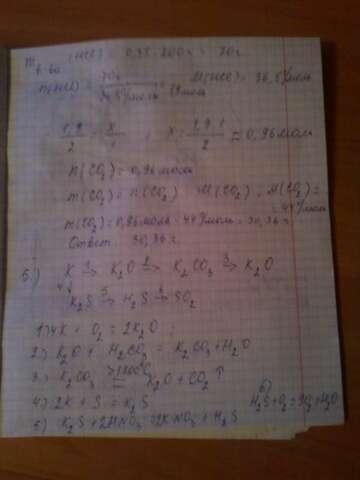 m
в-ва (HCl) = 0,35 · 200 г = 70 г
n(HCl) = 70 г / 36,5 г/моль = 1,9 моль M(HCl) = 36,5 г/моль
1,9 / 2 = X / 1 ; X = 1,9 · 1 / 2 = 0,96 моль
n(CO₂) = 0,96 моль
m(CO₂) = n(CO₂) · M(CO₂) M(CO₂) =
= 44 г/моль
m(CO₂) = 0,96 моль · 44 г/моль = 30,36 г.
Ответ 30,36 г.
5) K →¹ K₂O →² K₂CO₃ →³ K₂O
4↓
K₂S →⁵ H₂S →⁶ SO₂
1) 4K + O₂ = 2K₂O
2) K₂O + H₂CO₃ = K₂CO₃ + H₂O
3) K₂CO₃ = K₂O + CO₂↑
4) 2K + S = K₂S
6)
H₂S + O₂ = SO₂ + H₂O
5) K₂S + 2HNO₃ = 2KNO₃ + H₂S